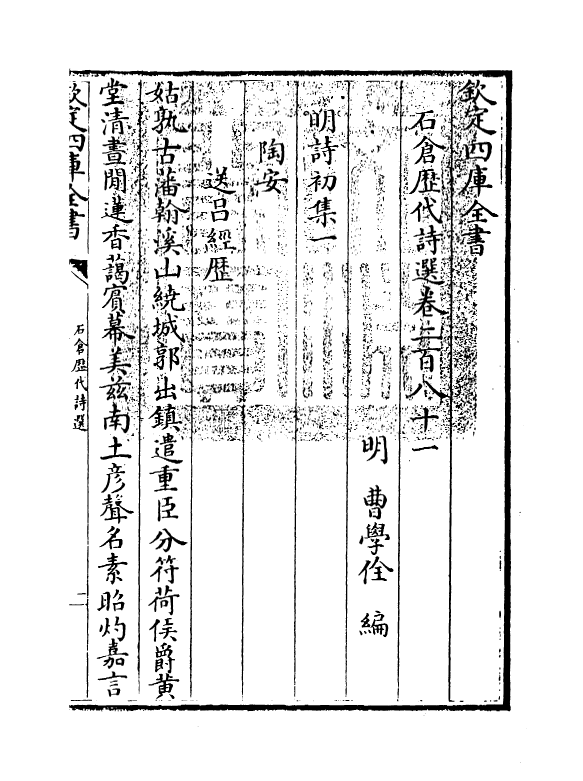 欽定四庫全書
石倉歴代詩選卷二百八十一
明　曹學佺　編
明詩初集一
陶安
送吕經歴
姑孰古藩翰溪山繞城郭出鎮遣重臣分符荷侯爵黄
堂清晝聞蓮香藹賔幕美兹南土彦聲名素昭灼嘉言
欽定四庫全書
石倉歴代詩選